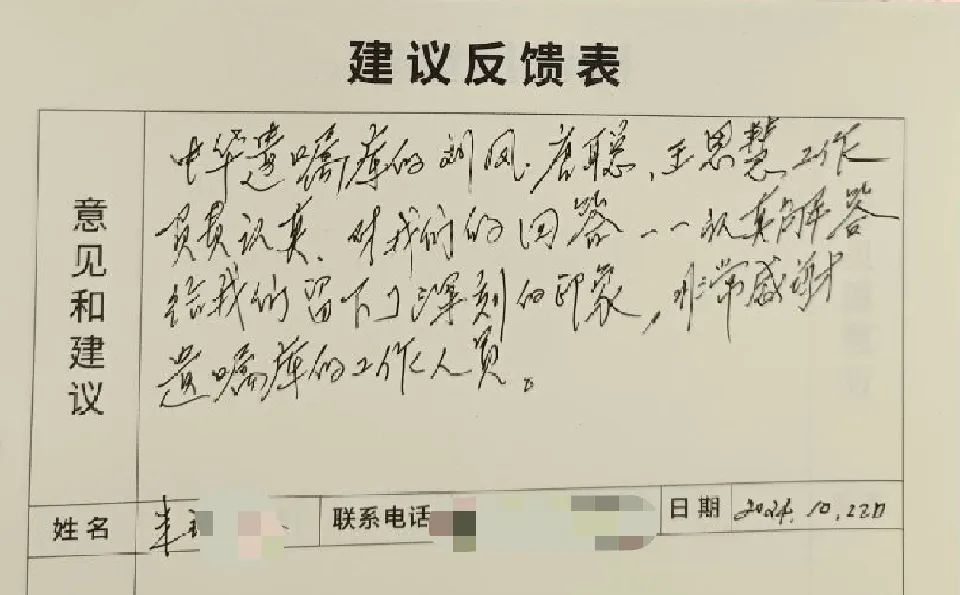 建议反馈表
意见和建议
中华遗嘱库的刘凤、唐聪、王思慧工作
负责认真、对我们的回答一一认真解答
给我们留下了深刻的印象，非常感谢
遗嘱库的工作人员。
姓名
联系电话
日期 2024.10.22日